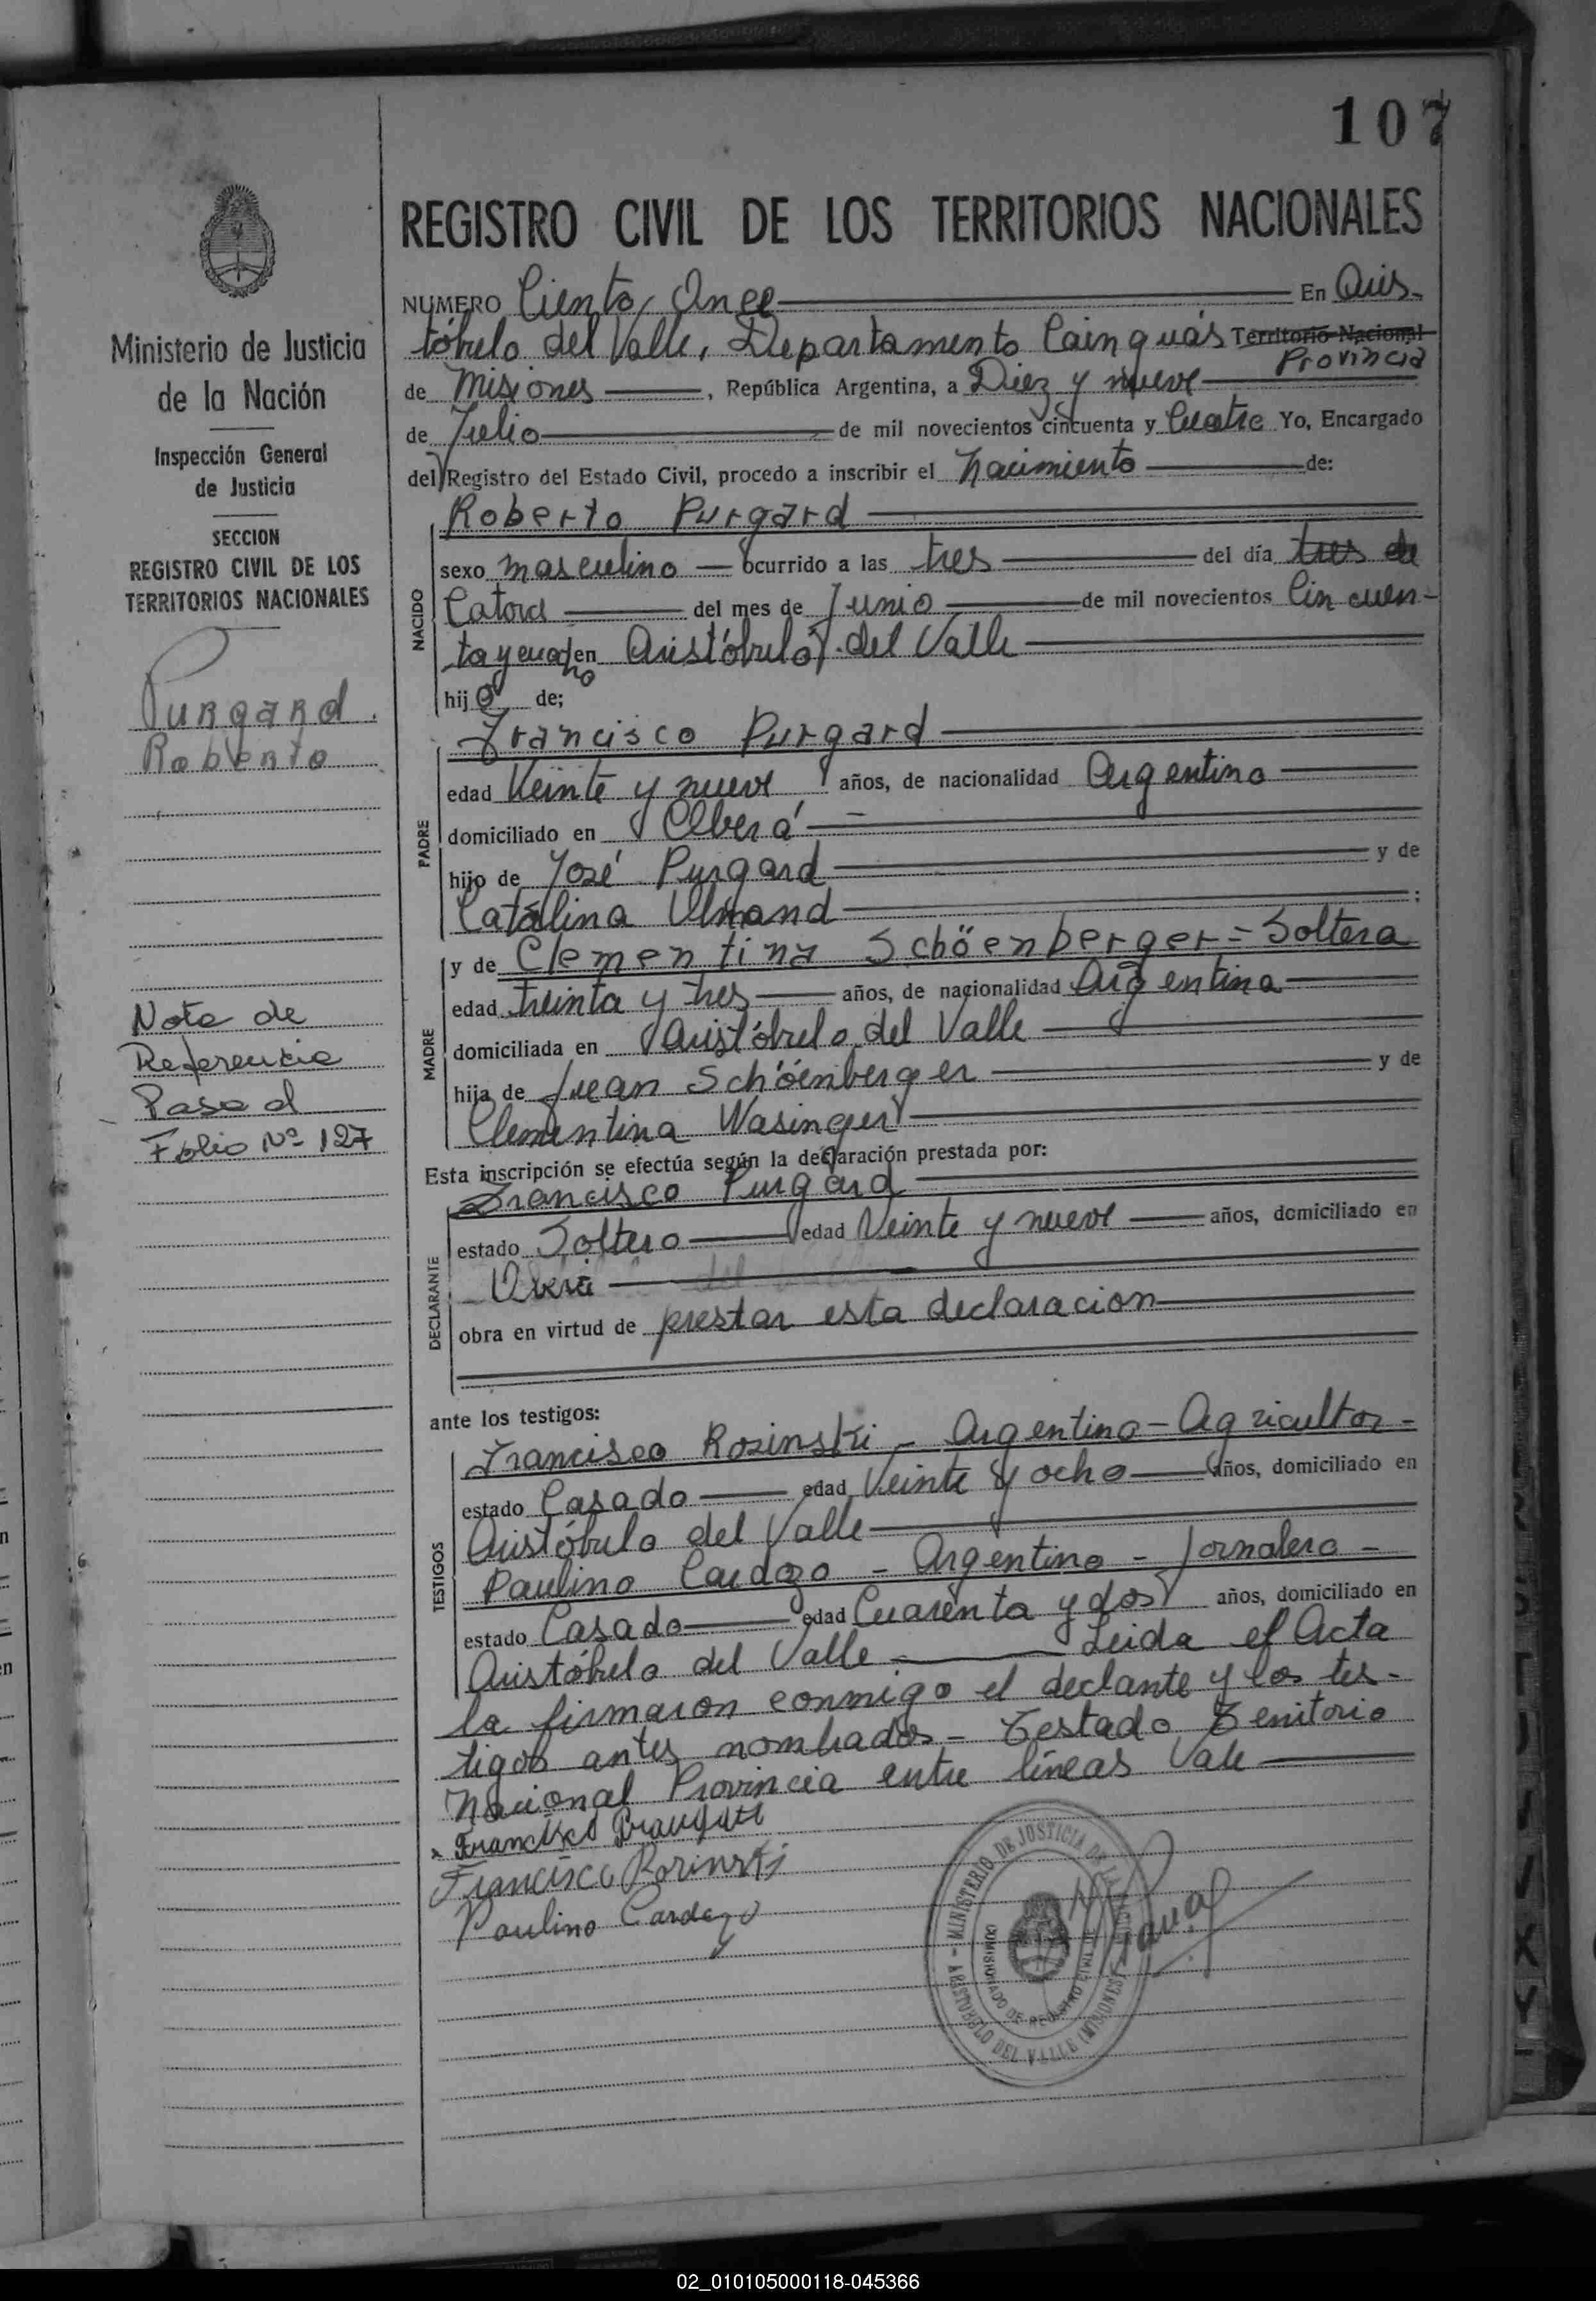 107
REGISTRO CIVIL DE LOS TERRITORIOS NACIONALES
Ministerio de Justicia
de la Nación
Inspección General
de Justicia
SECCION
REGISTRO CIVIL DE LOS
TERRITORIOS NACIONALES
Purgard
Roberto
Nota de
Referencia
Pasa al
Folio Nº 127
NUMERO Ciento Once En Aris-
tóbulo del Valle, Departamento Cainguás Territorio Nacional
Provincia
de Misiones, República Argentina, a Diez y nueve
de Julio de mil novecientos cincuenta y Cuatro Yo, Encargado
del Registro del Estado Civil, procedo a inscribir el Nacimiento de:
NACIDO
Roberto Purgard
sexo masculino ocurrido a las tres del día tres de
Catorce del mes de Junio de mil novecientos Cincuen-
ta y cuatro en Aristóbulo del Valle
hijo de;
PADRE
Francisco Purgard
edad Veinte y nueve años, de nacionalidad Argentino
domiciliado en Oberá
hijo de José Purgard y de
Catalina Ulmand;
MADRE
y de Clementina Schöenberger = Soltera
edad treinta y tres años, de nacionalidad Argentina
domiciliada en Aristóbulo del Valle
hija de Juan Schöenberger y de
Clementina Wasinger
Esta inscripción se efectúa según la declaración prestada por:
DECLARANTE
Francisco Purgard
estado Soltero edad Veinte y nueve años, domiciliado en
Oberá
obra en virtud de prestar esta declaracion
ante los testigos:
TESTIGOS
Francisco Rozinski - Argentino - Agricultor -
estado Casado edad Veinte y ocho años, domiciliado en
Aristóbulo del Valle
Paulino Cardozo - Argentino - Jornalero -
estado Casado edad Cuarenta y dos años, domiciliado en
Aristóbulo del Valle - Leida el Acta
la firmaron conmigo el declante y los tes-
tigos antes nombados - Testado Territorio
Nacional Provincia entre líneas Vale
Francisco
Francisco Rozinski
Paulino Cardozo
MINISTERIO DE JUSTICIA DE LA NACION
COMISIONADO DE REGISTRO CIVIL
ARISTOBULO DEL VALLE (MISIONES)
02_010105000118-045366